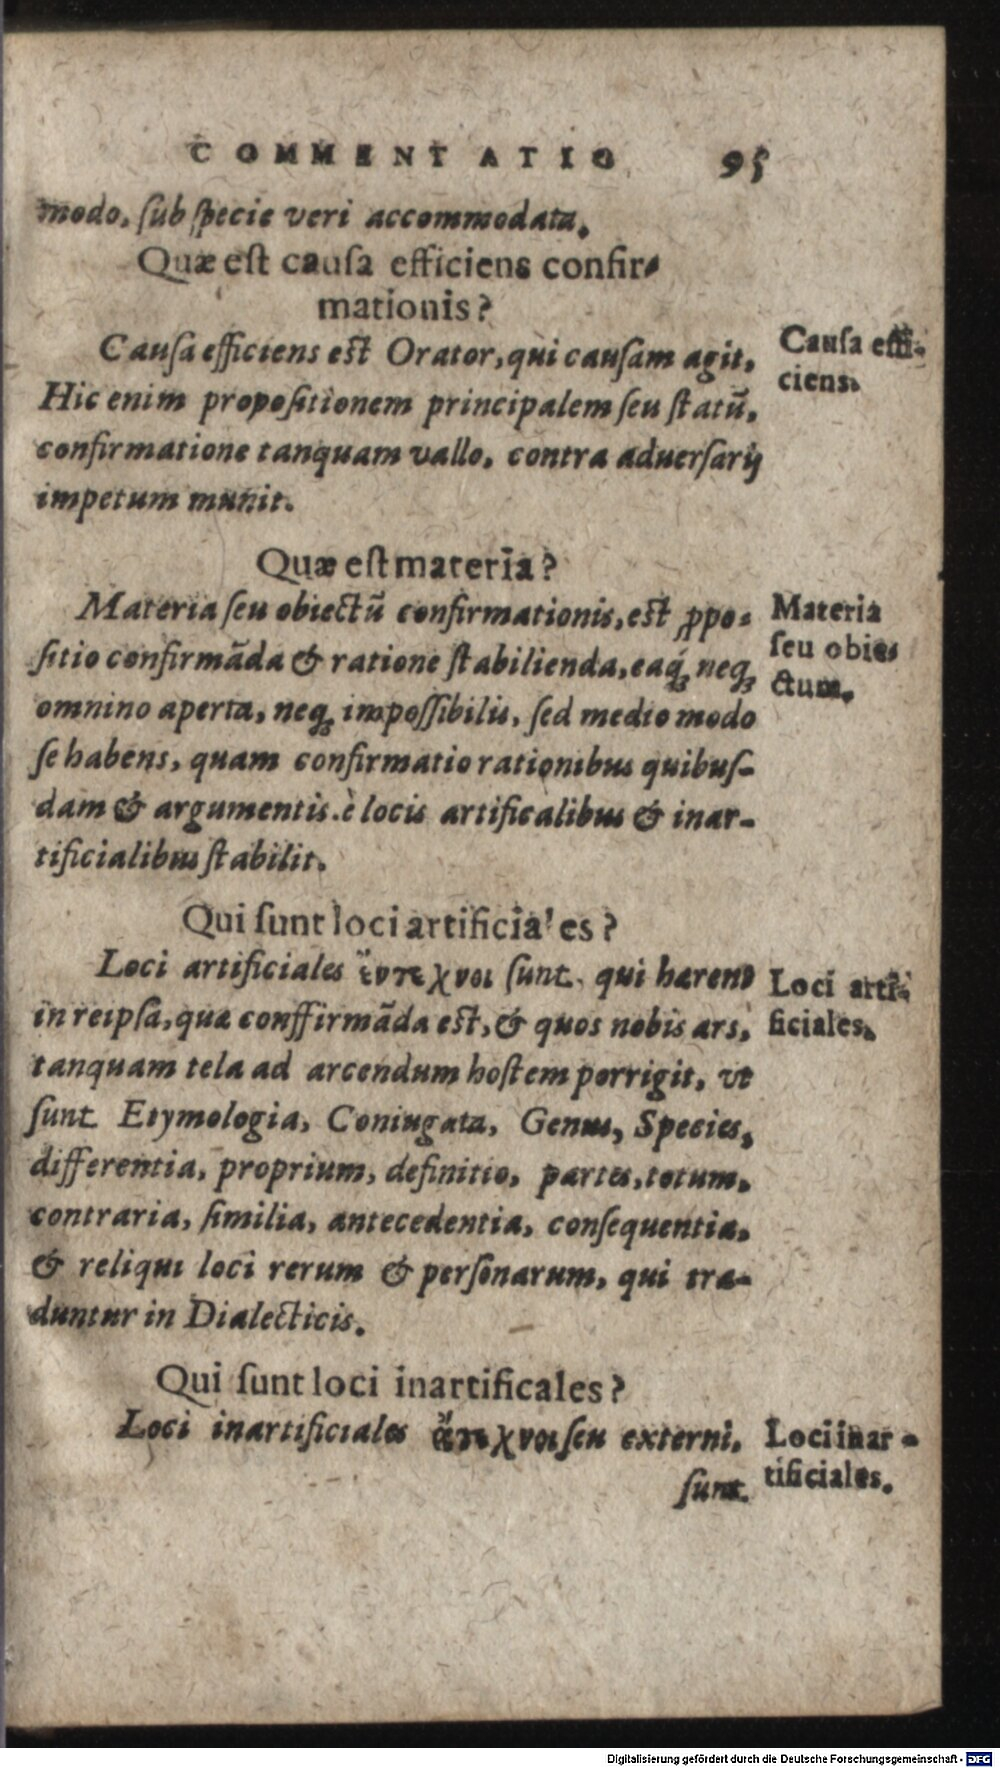 COMMENTATIO 95
modo, ſub ſpecie veri accommodata.
Quæ eſt cauſa efficiens confir-
mationis?
Cauſa efficiens eſt Orator, qui cauſam agit.
Cauſa effi-
ciens.
Hic enim propoſitionem principalem ſeu ſtatū,
confirmatione tanquam vallo, contra aduerſarij
impetum munit.
Quæ eſt materia?
Materia ſeu obiectū confirmationis, eſt ꝓpo-
Materia
ſeu obie-
ctum.
ſitio confirmāda & ratione ſtabilienda, eaq́ꝫ neqꝫ
omnino aperta, neqꝫ impoſſibilis, ſed medio modo
ſe habens, quam confirmatio rationibus quibuſ-
dam & argumentis è locis artificalibus & inar-
tificialibus ſtabilit.
Qui ſunt loci artificiales?
Loci artificiales ἔντεχνοι ſunt, qui hærent
Loci arti-
ficiales.
in re ipſa, quæ conffirmāda eſt, & quos nobis ars,
tanquam tela ad arcendum hoſtem porrigit, vt
ſunt Etymologia, Coniugata, Genus, Species,
differentia, proprium, definitio, partes, totum,
contraria, ſimilia, antecedentia, conſequentia,
& reliqui loci rerum & perſonarum, qui tra-
duntur in Dialecticis.
Qui ſunt loci inartificales?
Loci inartificiales ἄτεχνοι ſeu externi,
Loci inar-
tificiales.
ſunt.
Digitalisierung gefördert durch die Deutsche Forschungsgemeinschaft - DFG